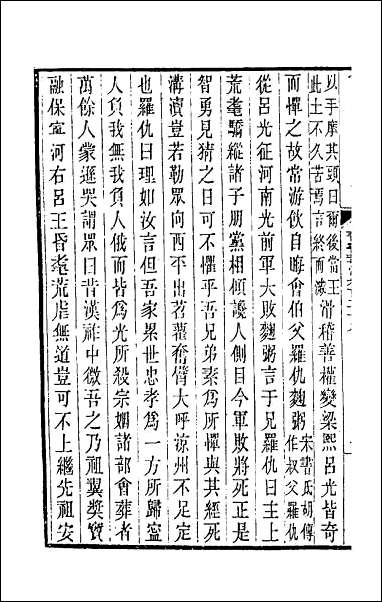 以手摩其頭曰爾後當王
此土不久苦焉言終而滅
滑稽善權變梁熙呂光皆奇
而憚之故常游飲自晦會伯父羅仇麴粥
宋書氐胡傳
作叔父羅仇
從呂光征河南光前軍大敗麴粥言于兄羅仇曰主上
荒耄驕縱諸子朋黨相傾讒人側目今軍敗將死正是
智勇見猜之日可不懼乎吾兄弟素爲所憚與其經死
溝瀆豈若勒眾向西平出苕藋奮臂大呼涼州不足定
也羅仇曰理如汝言但吾家累世忠孝爲一方所歸寧
人負我無我負人俄而皆爲光所殺宗姻諸部會葬者
萬餘人蒙遜哭謂眾曰昔漢祚中微吾之乃祖翼獎竇
融保寧河右呂王昏耄荒虐無道豈可不上繼先祖安